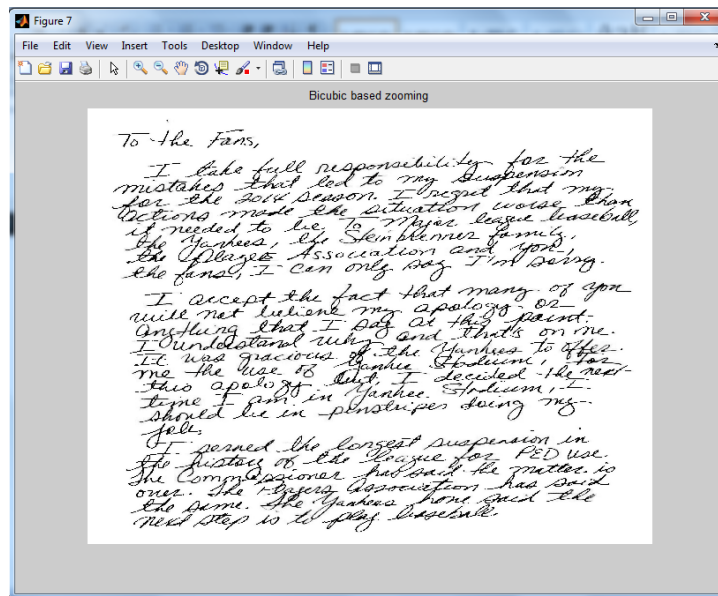 Figure 7
File Edit View Insert Tools Desktop Window Help
Bicubic based zooming
To the Fans,
I take full responsibility for the
mistakes that led to my suspension
for the 2014 season. I regret that my
actions made the situation worse than
it needed to be. To Major League Baseball,
the Yankees, the Steinbrenner family,
the Players Association and you,
the fans, I can only say I'm sorry.
I accept the fact that many of you
will not believe my apology or
anything that I say at this point.
I understand why and that's on me.
It was gracious of the Yankees to offer
me the use of Yankee Stadium, for
this apology but, I decided the next
time I am in Yankee Stadium, I
should be in pinstripes doing my
job.
I served the longest suspension in
the history of the league for PED use.
The Commissioner has said the matter is
over. The Players Association has said
the same. The Yankees have said the
next step is to play baseball.